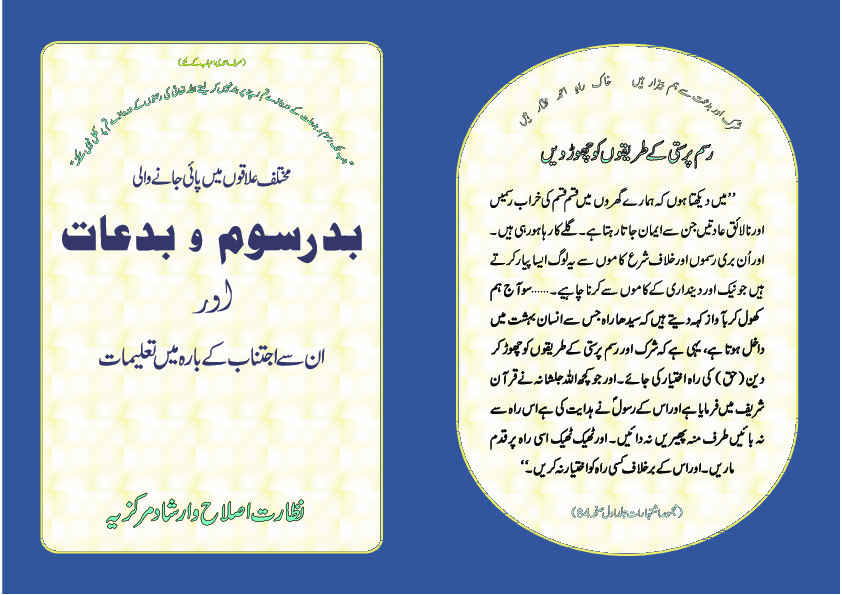 (صرف احمدی احباب کے لئے)
مختلف علاقوں میں پائی جانے والی
بدرسوم و بدعات
اور
ان سے اجتناب کے بارہ میں تعلیمات
نظارت اصلاح وارشاد مرکزیہ
شرک اور بدعت سے ہم بیزار ہیں خاک راہ احمد مختار ہیں
رسم پرستی کے طریقوں کو چھوڑ دیں
’’میں دیکھتا ہوں کہ ہمارے گھروں میں قسم قسم کی خراب رسمیں
اور نالائق عادتیں جن سے ایمان جاتا رہتا ہے۔ گلے کا رہا ہو رہی ہیں۔
اور اُن بری رسموں اور خلاف شرع کاموں سے یہ لوگ ایسا پیار کرتے
ہیں جو نیک اور دینداری کے کاموں سے کرنا چاہیے۔......سو آج ہم
کھول کر بآواز کہہ دیتے ہیں کہ سیدھا راہ جس سے انسان بہشت میں
داخل ہوتا ہے، یہی ہے کہ شرک اور رسم پرستی کے طریقوں کو چھوڑ کر
دین (حق) کی راہ اختیار کی جائے۔ اور جو کچھ اللہ جلشانہ نے قرآن
شریف میں فرمایا ہے اور اس کے رسولؐ نے ہدایت کی ہے اس راہ سے
نہ بائیں طرف منہ پھیریں نہ دائیں۔ اور ٹھیک ٹھیک اسی راہ پر قدم
ماریں۔ اور اس کے برخلاف کسی راہ کو اختیار نہ کریں۔‘‘
(مجموعہ اشتہارات جلد اول صفحہ 84)